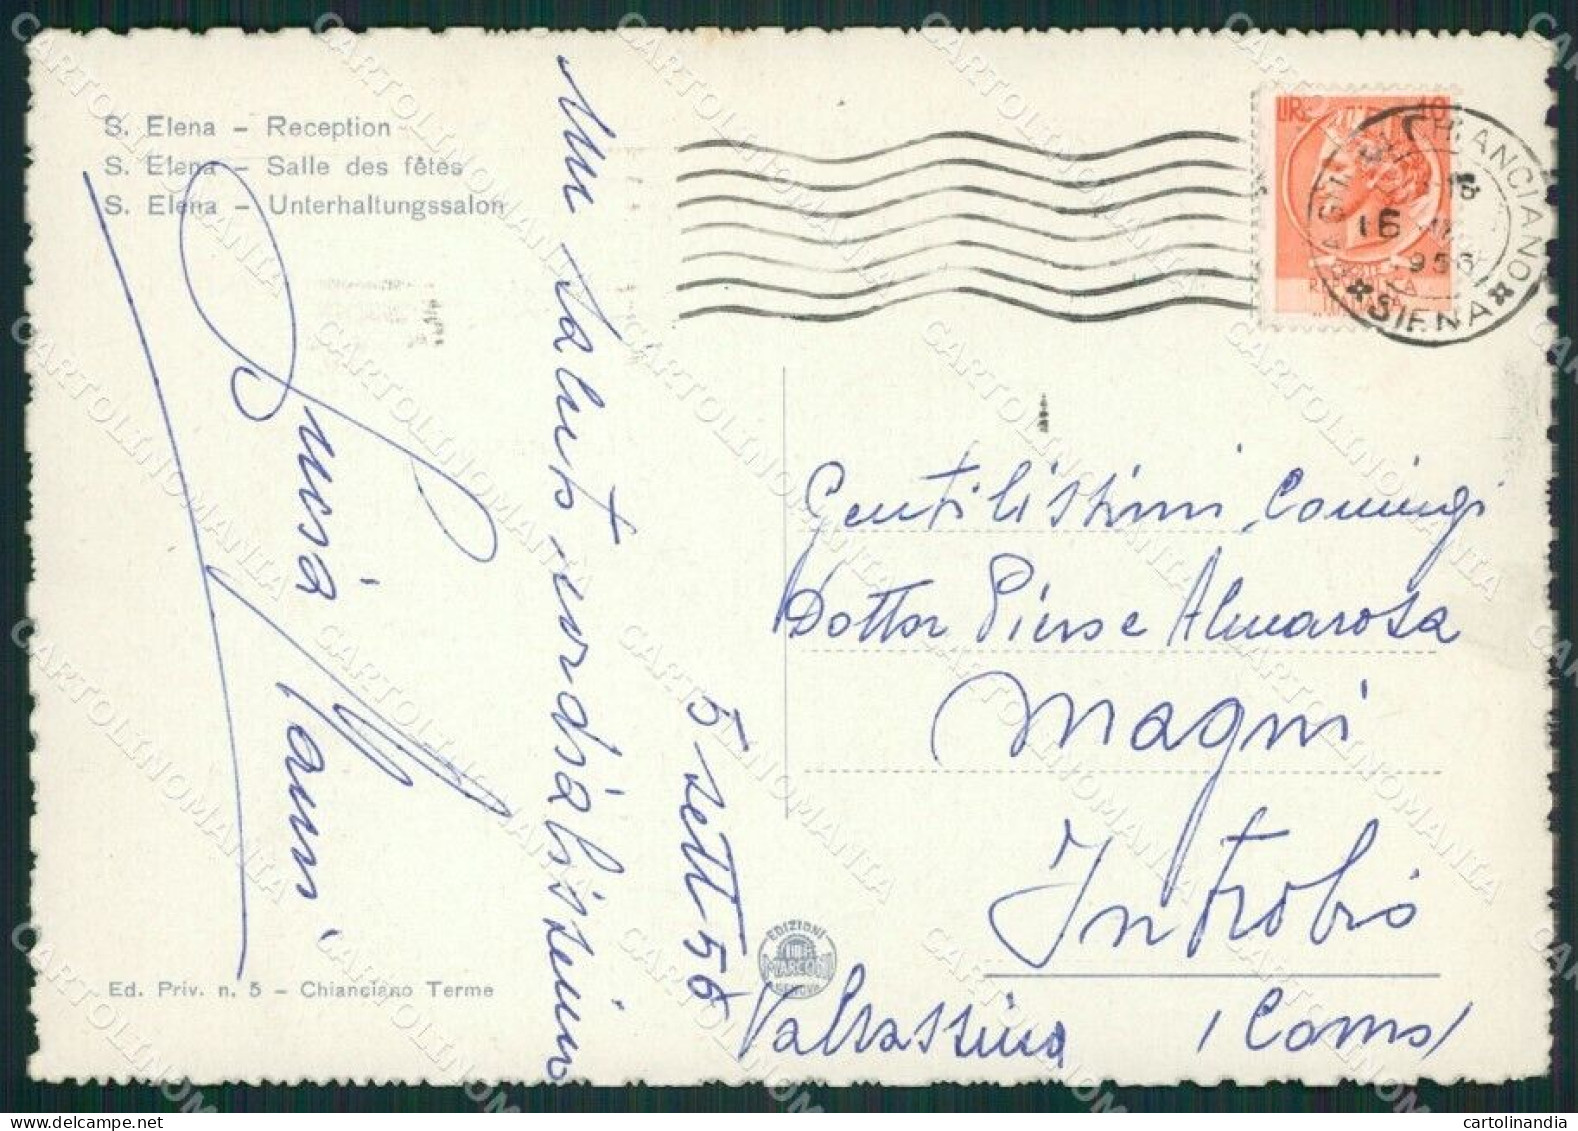 S. Elena - Reception
S. Elena - Salle des fêtes
S. Elena - Unterhaltungssalon
Un saluto cordialissimo
5 sett 56
Ed. Priv. n. 5 - Chianciano Terme
LIRE 10
CHIANCIANO
SIENA
16
Gentilissimi Coniugi
Dottor Piero e Almarosa
Magni
Introbio
Valsassina (Como)
EDIZIONI
MARCONI
GENOVA
CARTOLINOMANIA
cartolinandia